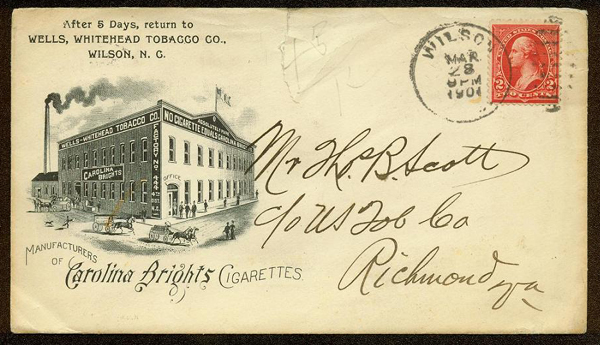 After 5 Days, return to
WELLS, WHITEHEAD TOBACCO CO.,
WILSON, N. C.
WILSON
MAR
28
8PM
1901
2 CENTS 2
WELLS-WHITEHEAD TOBACCO CO.
ABSOLUTELY PURE
NO CIGARETTE EQUALS CAROLINA BRIGHTS
CAROLINA
BRIGHTS
FACTORY NO.
OFFICE
MANUFACTURERS
OF Carolina Brights CIGARETTES
Mr Thos. B. Scott
c/o US Tob Co
Richmond, Va